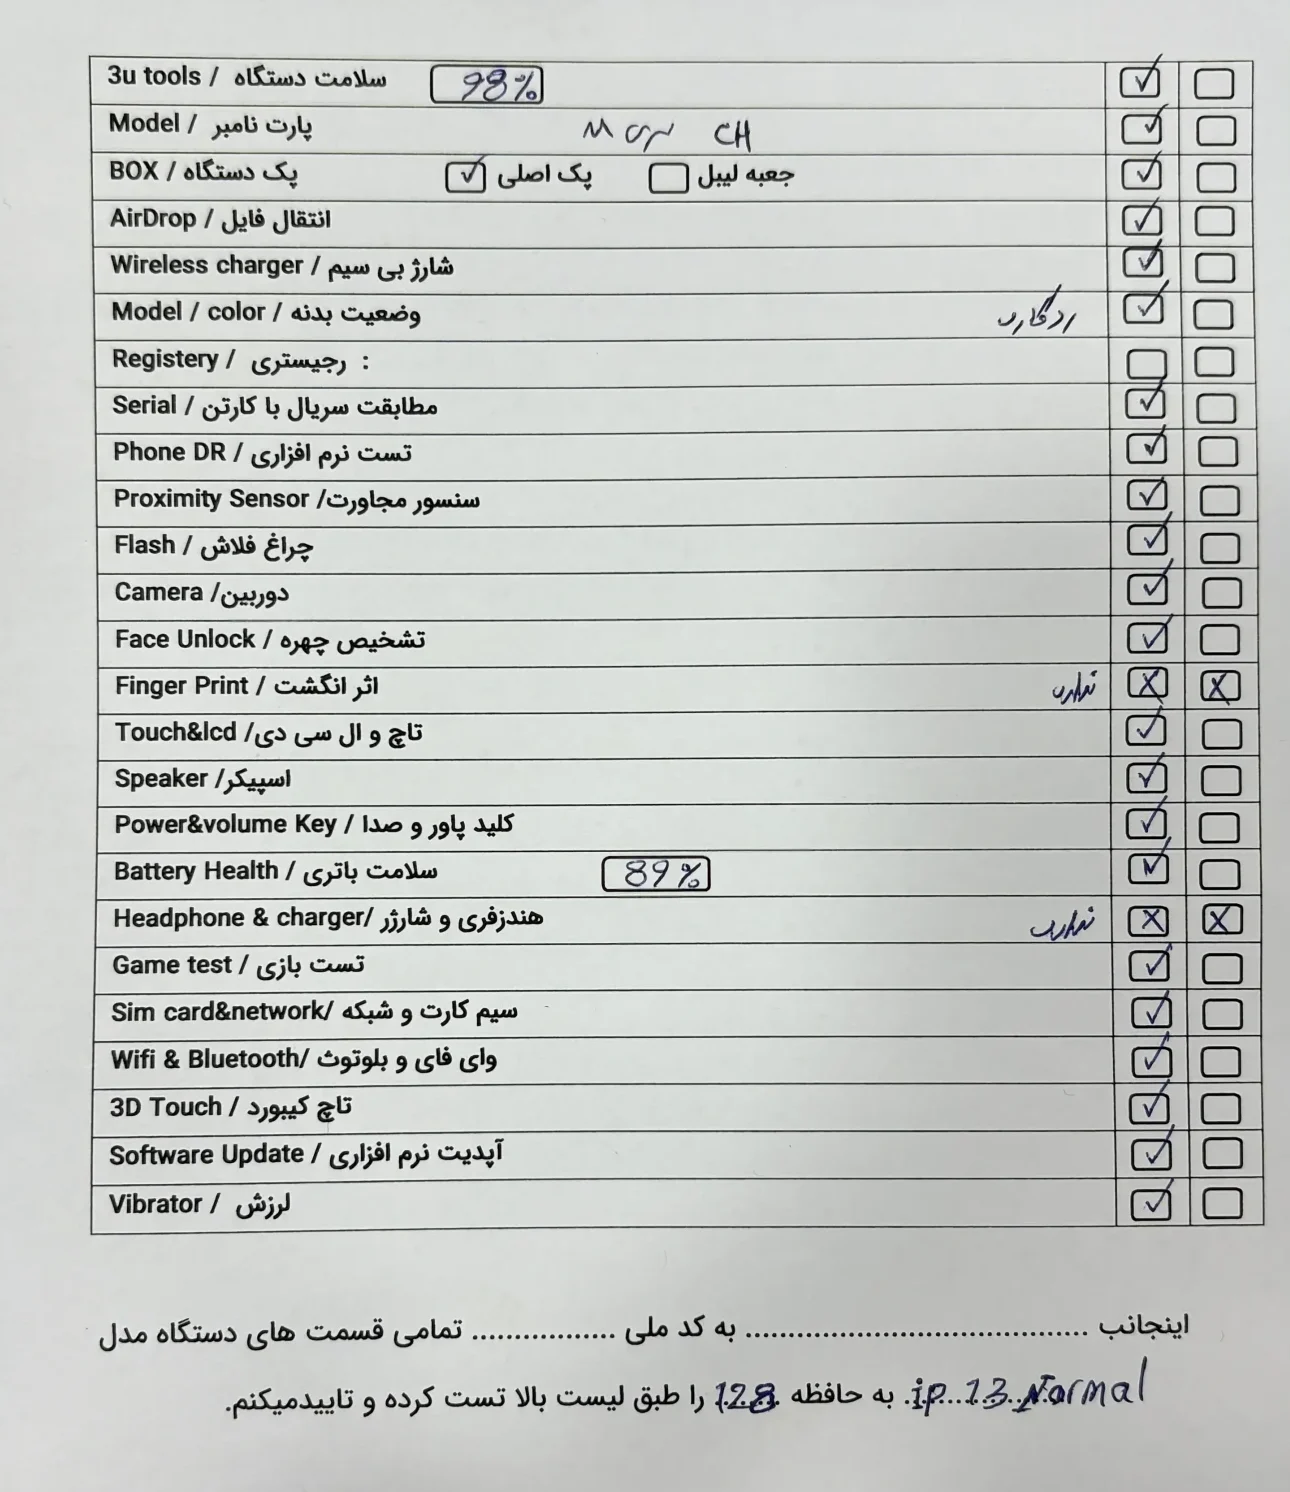 3u tools / سلامت دستگاه 98%
Model / پارت نامبر M CH
BOX / پک دستگاه پک اصلی جعبه لیبل
AirDrop / انتقال فایل
Wireless charger / شارژ بی سیم
Model / color / وضعیت بدنه
Registery / رجیستری :
Serial / مطابقت سریال با کارتن
Phone DR / تست نرم افزاری
Proximity Sensor /سنسور مجاورت
Flash / چراغ فلاش
Camera /دوربین
Face Unlock / تشخیص چهره
Finger Print / اثر انگشت ندارد
Touch&lcd /تاچ و ال سی دی
Speaker /اسپیکر
Power&volume Key / کلید پاور و صدا
Battery Health / سلامت باتری 89%
Headphone & charger/ هندزفری و شارژر ندارد
Game test / تست بازی
Sim card&network/ سیم کارت و شبکه
Wifi & Bluetooth/ وای فای و بلوتوث
3D Touch / تاچ کیبورد
Software Update / آپدیت نرم افزاری
Vibrator / لرزش
اینجانب ........................................ به کد ملی ................. تمامی قسمت های دستگاه مدل
ip 13 Normal به حافظه 128 را طبق لیست بالا تست کرده و تاییدمیکنم.